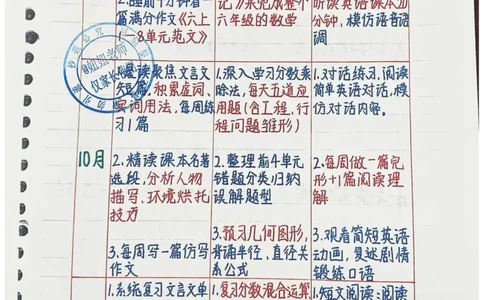 2.睡前十分钟看
篇满分作文《六上
1-8单元范文》
记》来完成整个
六年级的数学
听读英语课本20
分钟,模仿语音语
调
1.泛读聚焦文言文
短篇,积累虚词、
实词用法,每周练
习1篇
1.深入学习分数乘
除法,每天五道应
用题(含工程、行
程问题雏形)
1.对话练习,阅读
简单英语对话,模
仿对话内容。
10月
2.精读课本名著
选段,分析人物
描写、环境烘托
技巧
2.整理前4单元
错题分类归纳
误解题型
2.每周做一篇完
形+1篇阅读理
解
3.每周写一篇仿写
作文
3.预习几何图形,
背诵半径、直径关
系公式
3.观看简短英语
动画,复述剧情
锻炼口语
1.系统复习文言文单
1.复习分数混合运算
1.短文阅读:阅读